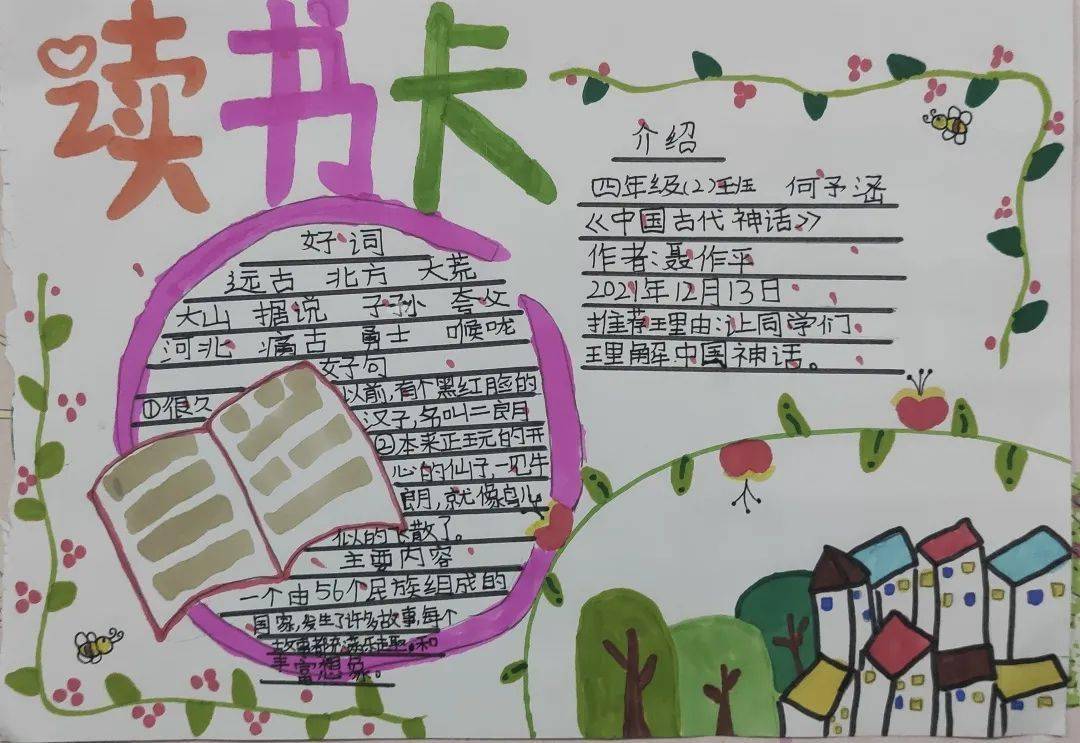 读书卡
好词
远古 北方 大荒
大山 据说 子孙 夸父
河北 痛古 勇士 喉咙
好句
①很久以前,有个黑红脸的
汉子,名叫二郎
②本来正玩的开
心的仙子,一见牛
郎,就像鸟儿
似的飞散了。
主要内容
一个由56个民族组成的
国家,发生了许多故事,每个
故事都充满乐趣,和
丰富想象。
介绍
四年级(2)班 何予涵
《中国古代神话》
作者:聂作平
2021年12月13日
推荐理由:让同学们
理解中国神话。